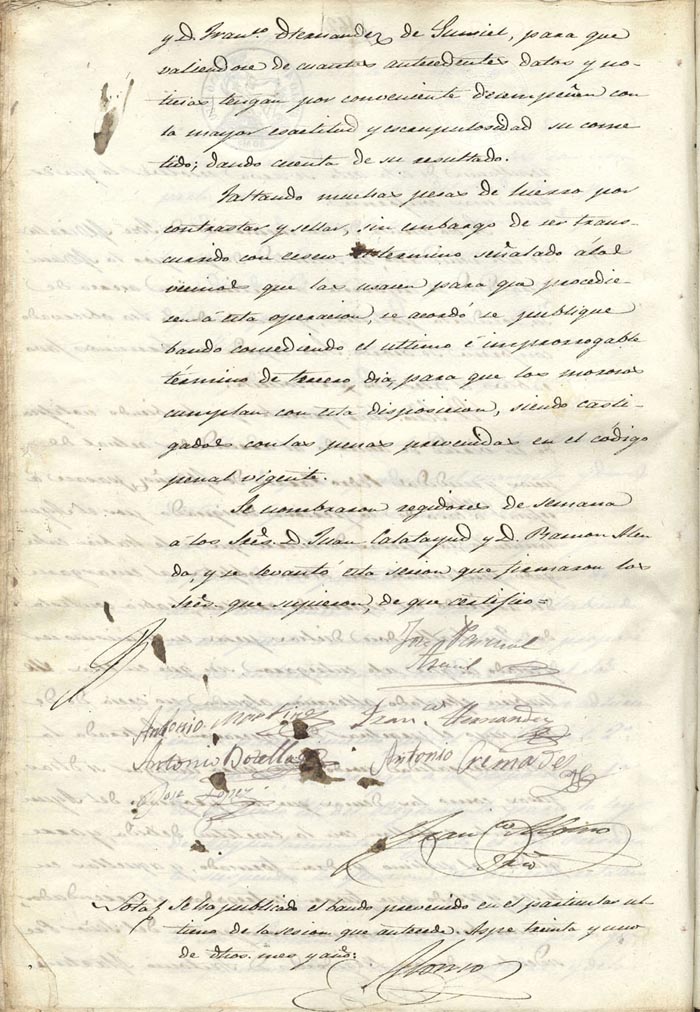 y D. Fran.co Hernandez de Sumiel, para que
valiendose de cuantos antecedentes datos y no-
ticias tengan por conveniente desempeñen con
la mayor esactitud y escrupulosidad su come-
tido; dando cuenta de su resultado.
Faltando muchas pesas de hierro por
contrastar y sellar, sin embargo de ser trans-
currido con esceso el termino señalado á los
vecinos que las usasen para que procedie-
sen á esta operacion, se acordó se publique
bando concediendo el ultimo é improrrogable
término de tercero dia, para que los morosos
cumplan con esta disposicion, siendo casti-
gados con las penas prevenidas en el código
penal vigente.
Se nombraron regidores de semana
á los Sres. D. Juan Calatayud y D. Ramon Alen-
da, y se levantó esta sesion que firmaron los
Sres. que supieron, de que certifico=
José Pascual
Antonio Martinez
Fran.co Hernandez
Antonio Botella
Antonio Cremades
Jose Lopez
Fran.co Alonso
Srio
Nota/ Se ha publicado el bando prevenido en el particular ul-
timo de la sesion que antecede. Aspe treinta y uno
de dhos. mes y año:
Alonso